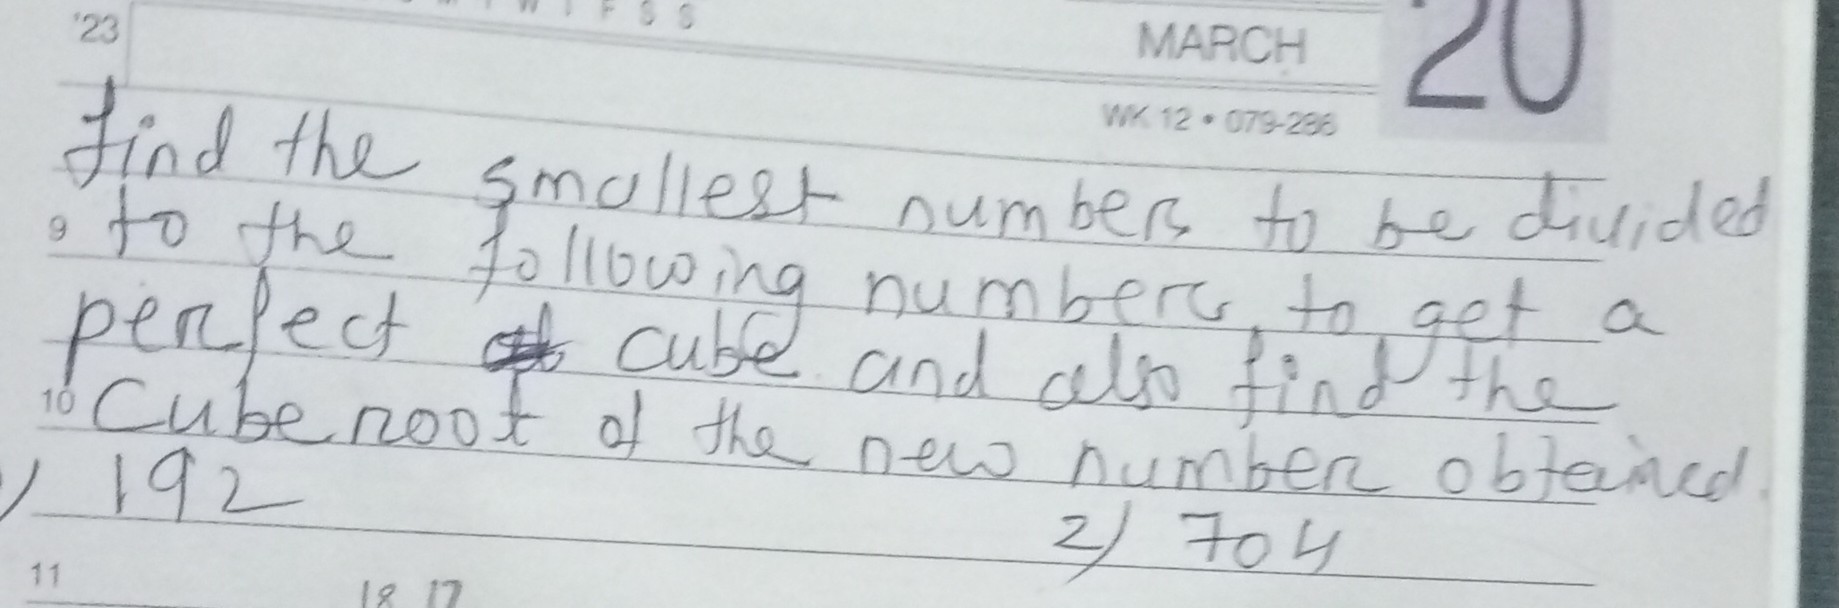 '23
MARCH 20
WK 12 • 079-286
find the smallest numbers to be divided
9 to the following numbers, to get a
perfect cube and also find the
10 Cube root of the new number obtained.
) 192
2) 704
11
18 17